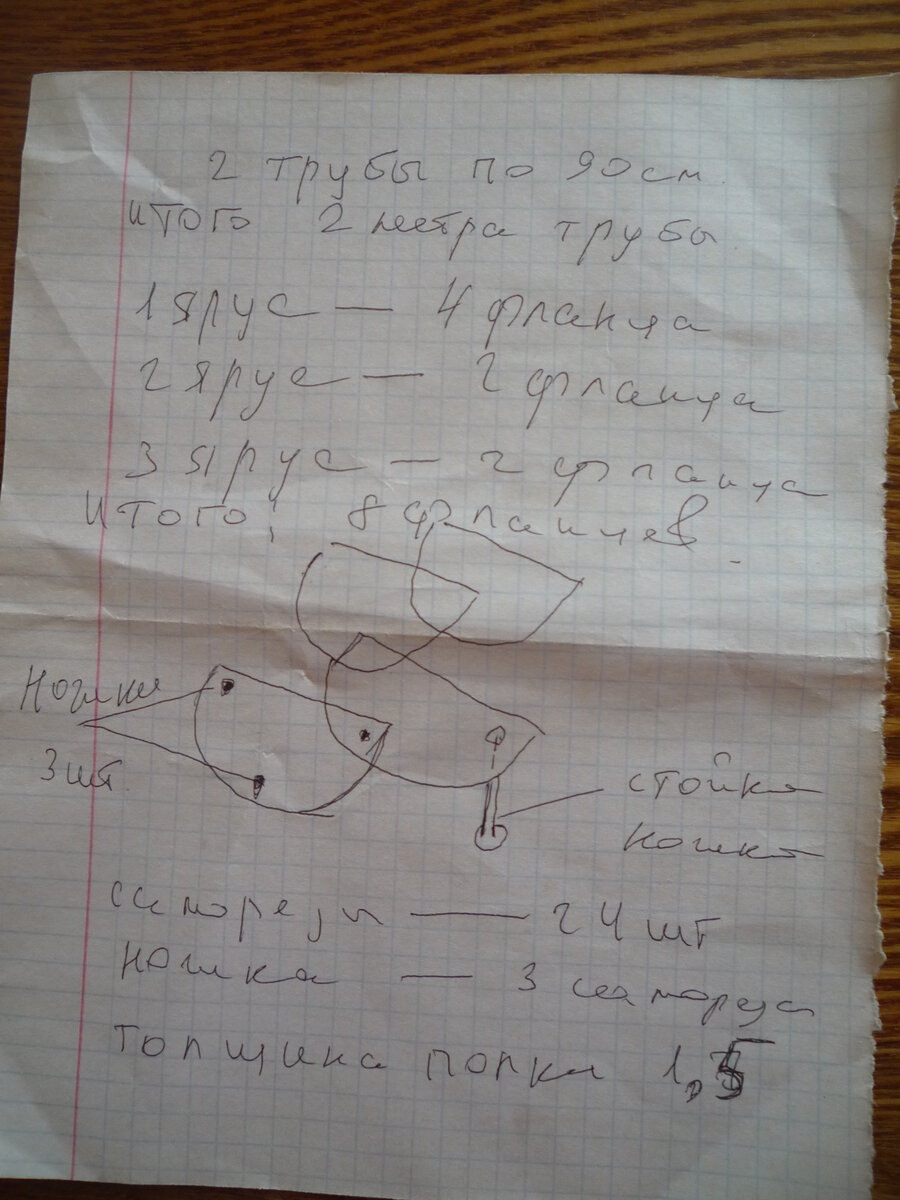 2 трубы по 90 см
итого 2 метра трубы
1 ярус — 4 фланца
2 яруса — 2 фланца
3 яруса — 2 фланца
итого: 8 фланцев
Ножки
3 шт.
стойка
ножка
саморезы — 24 шт
ножка — 3 самореза
толщина полки 1,5